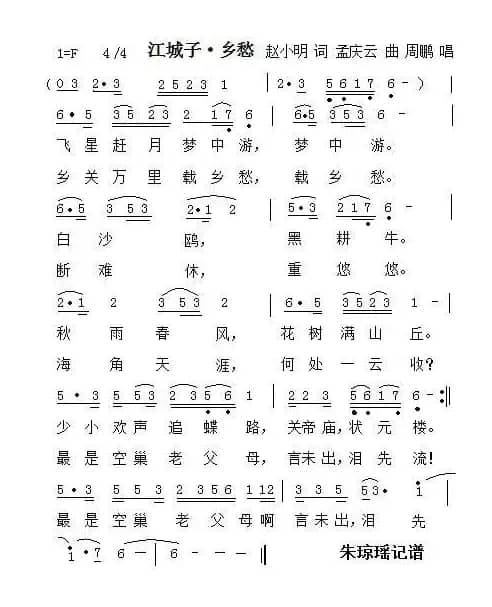 1=F 4/4 江城子·乡愁 赵小明 词 孟庆云 曲 周鹏 唱
(0 3 2·3 2 5 2 3 1 | 2·3 5 6 1 7 6 -)
6·5 3 5 2 3 2 1 7 6 | 6·5 3 5 2 3 6 -
飞星赶月梦中游，梦中游。
乡关万里载乡愁，载乡愁。
6·5 3 5 3 2·1 2 | 5·3 2 1 7 6 -
白沙鸥，黑耕牛。
断难休，重悠悠。
2·1 2 3 5 3 | 6·5 3 5 2 3 1 -
秋雨春风，花树满山丘。
海角天涯，何处一云收？
5·3 5 5 2 3 5 6 1 | 2 2 3 5 6 1 7 6 - :||
少小欢声追蝶路，关帝庙，状元楼。
最是空巢老父母，言未出，泪先流！
5·3 5 5 2 3 5 6 1 1 2 | 3 3 5 5 3· i
最是空巢老父母啊言未出，泪先
i·7 6 - | 6 - - - ||
朱琼瑶记谱